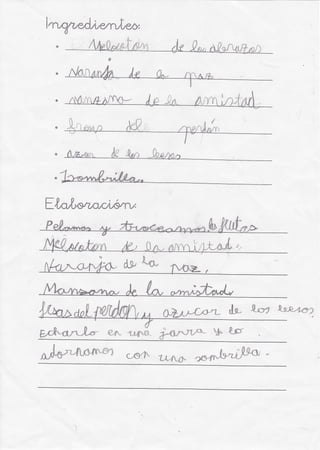 Ingredientes:
• Melocotón de los abrazos
• Naranja de la paz
• manzana de la amistad
• fresas del perdón
• azucar de los besos
• 1 sombrilla.
Elaboración:
Pelamos y troceamos la frutas
Melocoton de la amistad,
Naranja de la paz,
Manzana de la amistad
fresas del perdon y azucar de los besos
Echarlo en una jarra y lo
adornamos con una sombrilla.